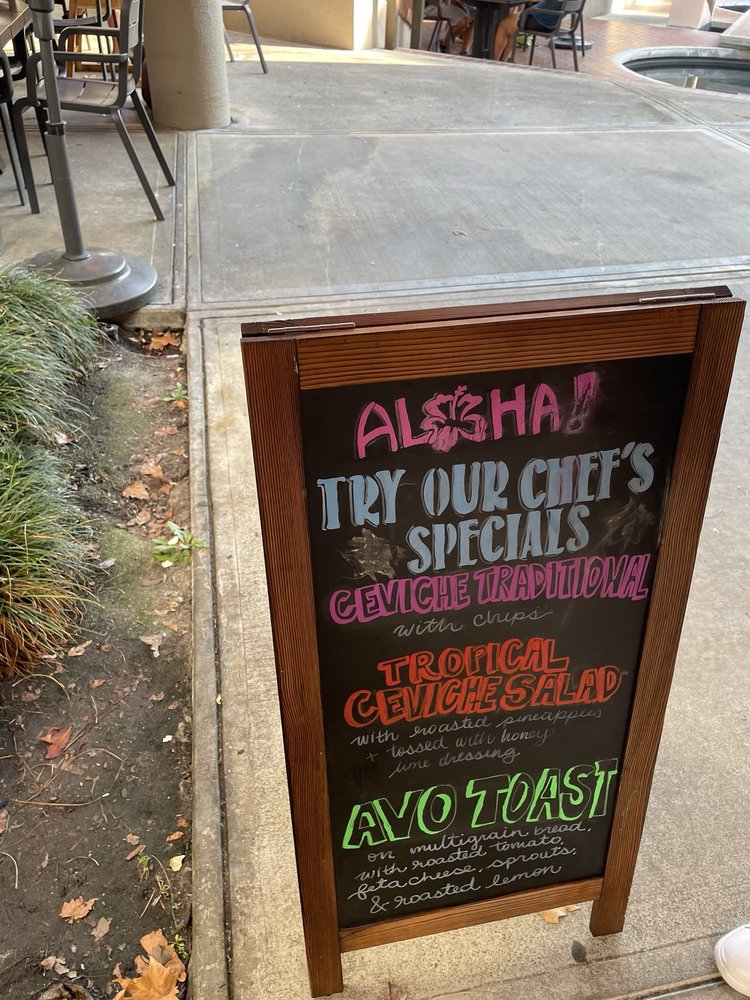 ALOHA!
TRY OUR CHEF'S
SPECIALS
CEVICHE TRADITIONAL
with chips
TROPICAL
CEVICHE SALAD
with roasted pineapples
+ tossed with honey
lime dressing
AVO TOAST
on multigrain bread,
with roasted tomato,
feta cheese, sprouts,
& roasted lemon